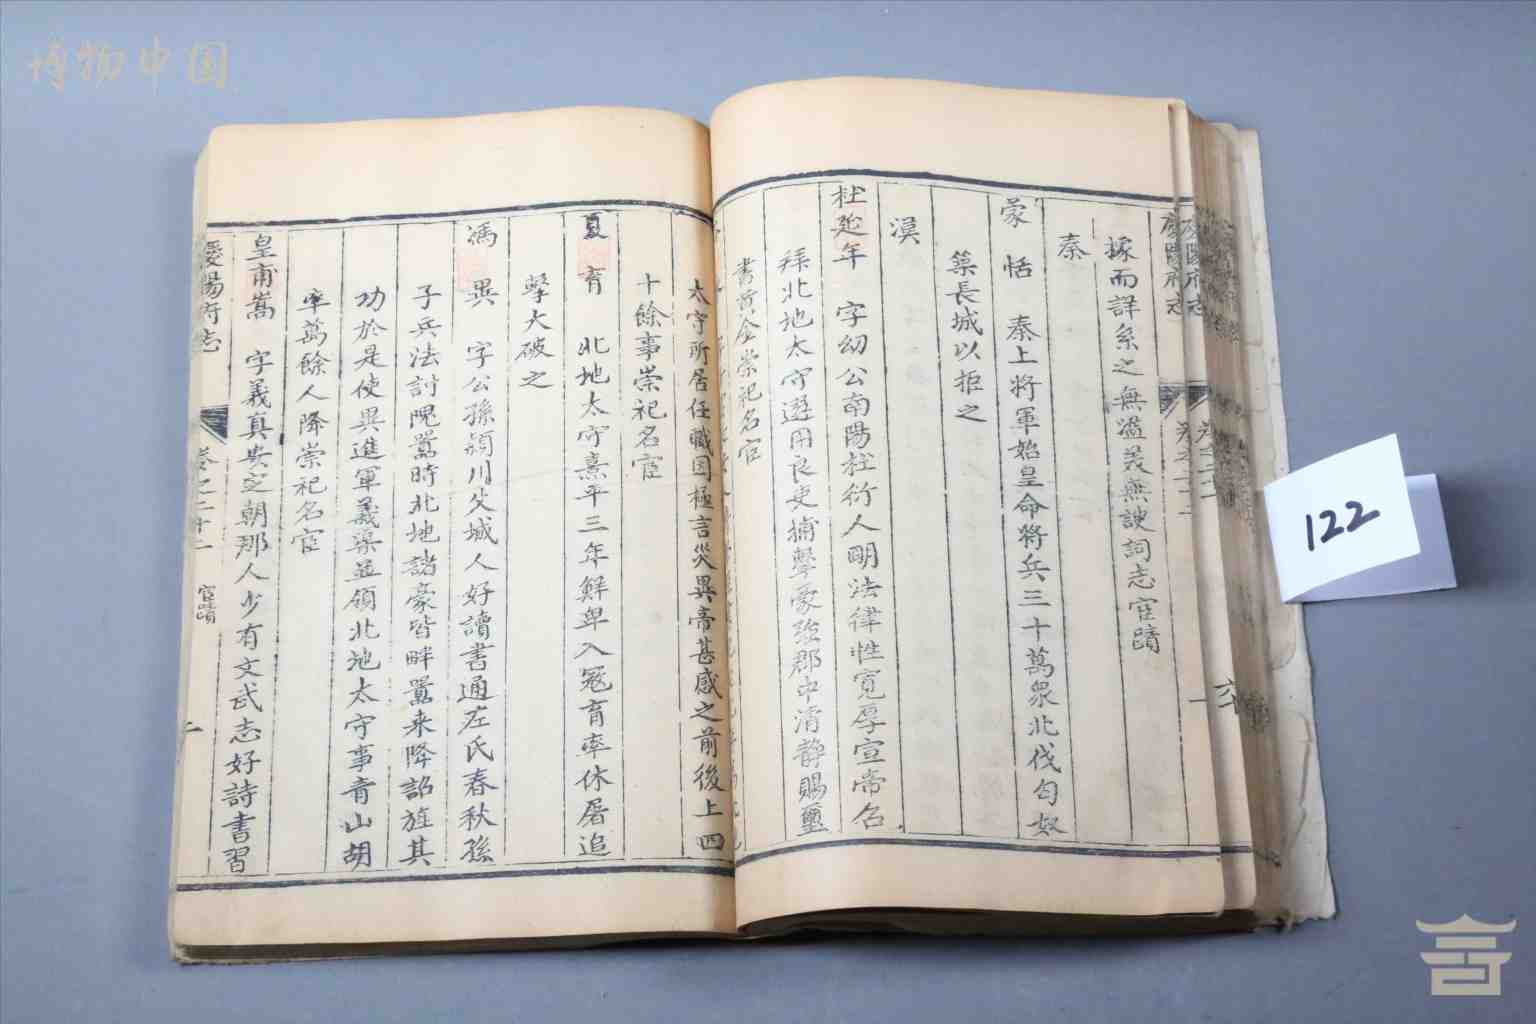 博物中国
慶陽府志
卷之二十二
一
據而詳系之無溢美無諛詞志宦蹟
秦
蒙恬 秦上將軍始皇命將兵三十萬眾北伐匈奴
築長城以拒之
漢
杜延年 字幼公南陽杜衍人明法律性寬厚宣帝召
拜北地太守選用良吏捕擊豪強郡中清靜賜璽
書黃金崇祀名宦
太守所居任職因極言災異帝甚感之前後上四
十餘事崇祀名宦
夏育 北地太守熹平三年鮮卑入冦育率休屠追
擊大破之
馮異 字公孫潁川父城人好讀書通左氏春秋孫
子兵法討隗囂時北地諸豪皆畔囂来降詔旌其
功於是使異進軍義渠並領北地太守事青山胡
率萬餘人降崇祀名宦
皇甫嵩 字義真安定朝那人少有文武志好詩書習
慶陽府志
卷之二十二
宦蹟
二
122